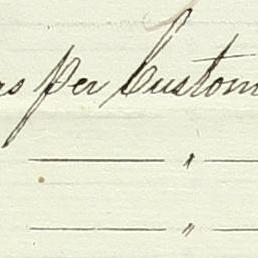 as per Custom
— " —
— " —